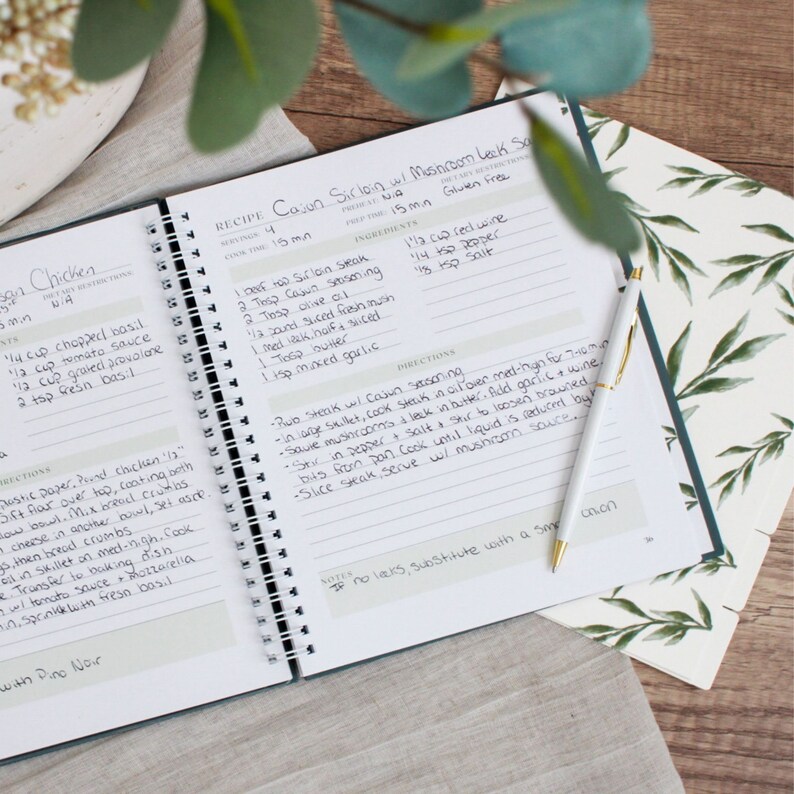 san Chicken
DIETARY RESTRICTIONS:
N/A
min
NTS
1/4 cup chopped basil
1/2 cup tomato sauce
1/2 cup grated provolone
2 tsp fresh basil
DIRECTIONS
plastic paper. Pound chicken 1/2"
Sift flour over top, coating both
low bowl. Mix bread crumbs
cheese in another bowl, set aside.
then bread crumbs
oil in skillet on med-high. Cook
Transfer to baking dish
w/ tomato sauce + mozzarella
min, sprinkle with fresh basil
with Pino Noir
RECIPE Cajun Sirloin w/ Mushroom Leek Sa
SERVINGS: 4 PREHEAT: N/A DIETARY RESTRICTIONS:
COOK TIME: 15 min PREP TIME: 15 min Gluten Free
INGREDIENTS
1 beef top sirloin steak
2 Tbsp Cajun seasoning
2 Tbsp olive oil
1/2 pound sliced fresh mush
1 med leek, half + sliced
1 Tbsp butter
1 tsp mixed garlic
1 1/2 cup red wine
1/4 tsp pepper
1/8 tsp salt
DIRECTIONS
-Rub steak w/ Cajun seasoning
-In large skillet, cook steak in oil over med-high for 7-10 min
-Saute mushrooms + leek in butter. Add garlic + wine
-Stir in pepper + salt + stir to loosen browned
bits from pan. Cook until liquid is reduced by
-Slice steak, serve w/ mushroom sauce.
NOTES
If no leeks, substitute with a small onion